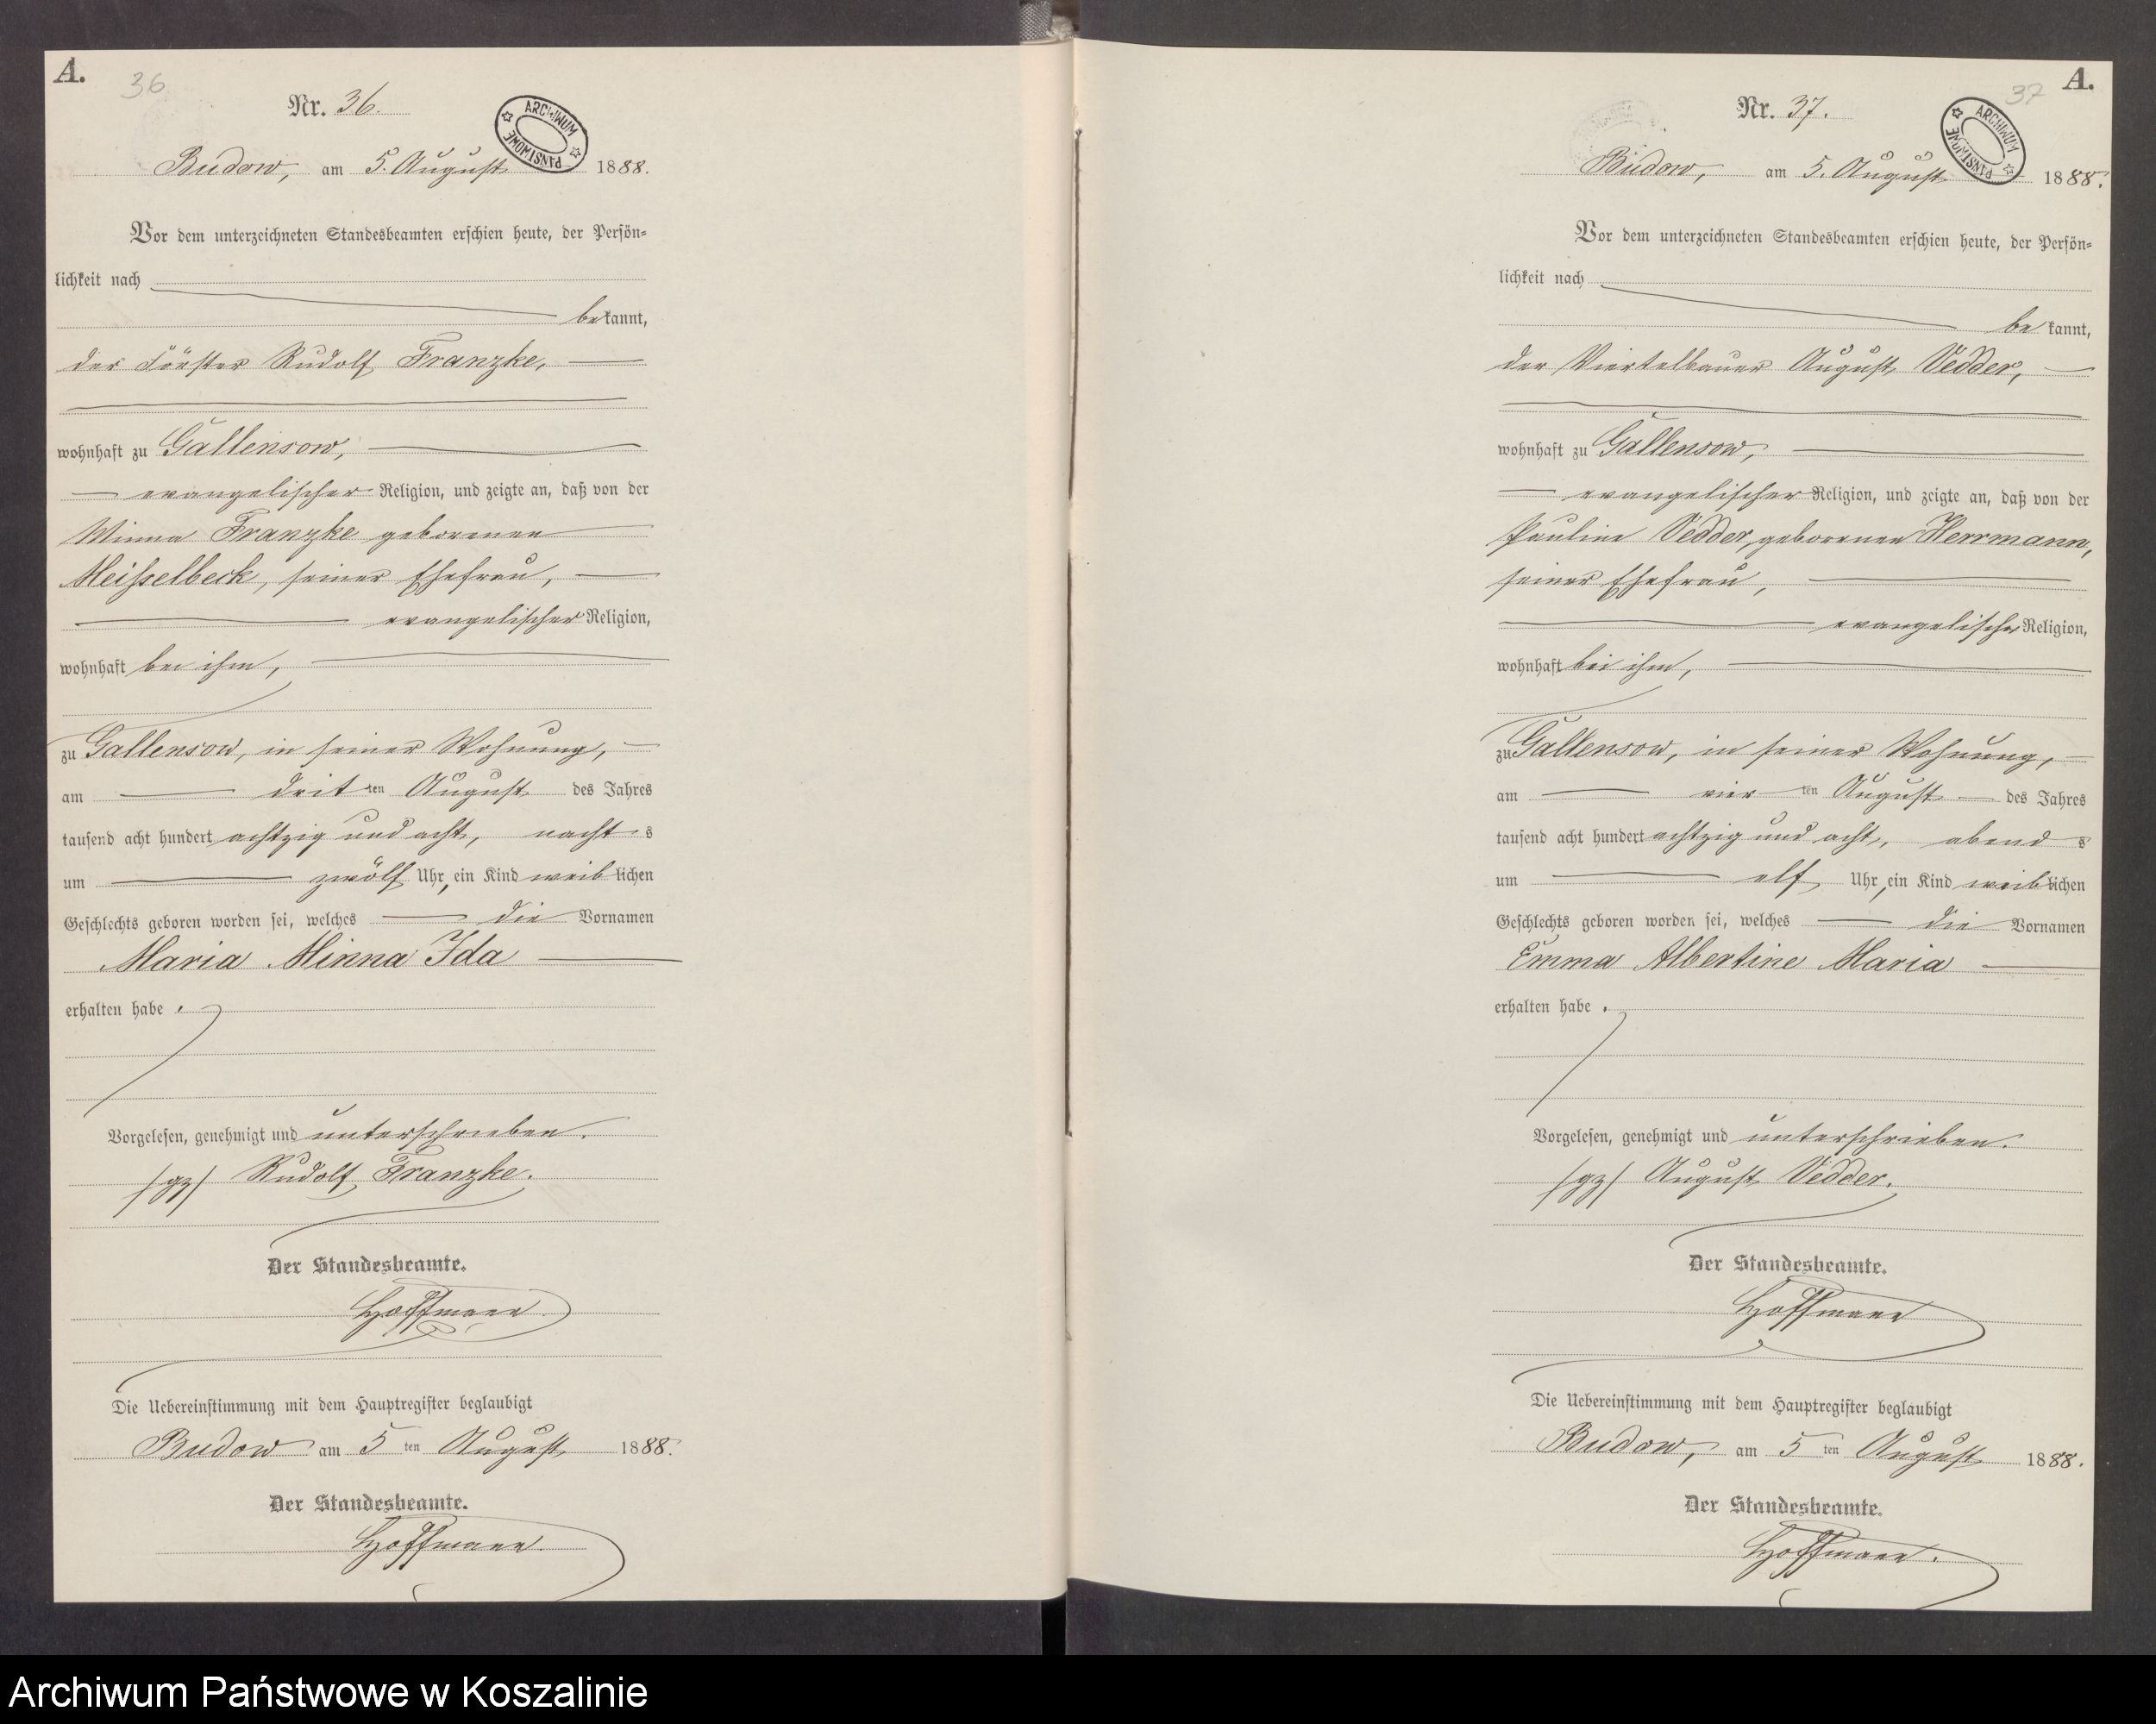 A.
36
Nr. 36.
ARCHIWUM PAŃSTWOWE
Budow, am 5. August 1888.
Vor dem unterzeichneten Standesbeamten erschien heute, der Persön-
lichkeit nach
bekannt,
der Förster Rudolf Franzke,
wohnhaft zu Gallensow,
evangelischer Religion, und zeigte an, daß von der
Minna Franzke geborenen
Meisselbeck, seiner Ehefrau,
evangelischer Religion,
wohnhaft bei ihm,
zu Gallensow, in seiner Wohnung,
am dritten August des Jahres
tausend acht hundert achtzig und acht, nachts
um zwölf Uhr, ein Kind weiblichen
Geschlechts geboren worden sei, welches die Vornamen
Maria Minna Ida
erhalten habe.
Vorgelesen, genehmigt und unterschrieben.
/gz/ Rudolf Franzke.
Der Standesbeamte.
Hoffmann.
Die Uebereinstimmung mit dem Hauptregister beglaubigt
Budow am 5 ten August 1888.
Der Standesbeamte.
Hoffmann.
A.
37
Nr. 37.
ARCHIWUM PAŃSTWOWE
Budow, am 5. August 1888.
Vor dem unterzeichneten Standesbeamten erschien heute, der Persön-
lichkeit nach
bekannt,
der Viertelbauer August Vedder,
wohnhaft zu Gallensow,
evangelischer Religion, und zeigte an, daß von der
Pauline Vedder, geborenen Herrmann,
seiner Ehefrau,
evangelischer Religion,
wohnhaft bei ihm,
zu Gallensow, in seiner Wohnung,
am vierten August des Jahres
tausend acht hundert achtzig und acht, abends
um elf Uhr, ein Kind weiblichen
Geschlechts geboren worden sei, welches die Vornamen
Emma Albertine Maria
erhalten habe.
Vorgelesen, genehmigt und unterschrieben.
/gz/ August Vedder.
Der Standesbeamte.
Hoffmann
Die Uebereinstimmung mit dem Hauptregister beglaubigt
Budow, am 5 ten August 1888.
Der Standesbeamte.
Hoffmann.
Archiwum Państwowe w Koszalinie